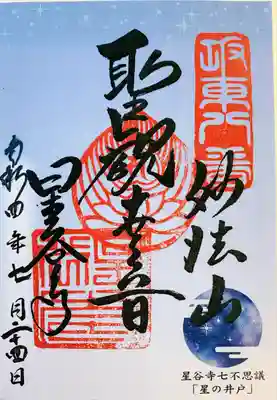 坂東八番
妙法山
聖觀世音
星谷寺
令和四年七月二十四日
星谷寺七不思議
「星の井戸」